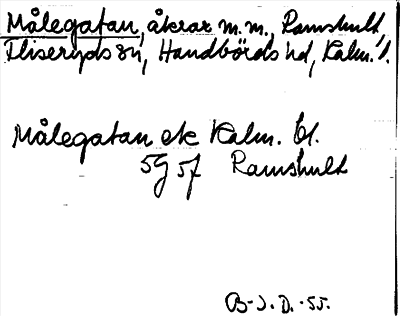 Målegatan, åkrar m.m., Ramshult,
Fliseryds sn, Handbörds hd, Kalm. l.
Målegatan ek Kalm. bl.
5G 5f Ramshult
B-J. D. -55.